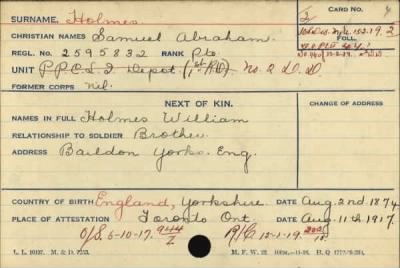 SURNAME Holmes CARD No.
CHRISTIAN NAMES Samuel Abraham
REGL. NO. 2595832 RANK Pte. FOLL.
UNIT P.P.C.L.I. Depot (1st R.D) No. 2 D.D.
FORMER CORPS Nil.
NEXT OF KIN. CHANGE OF ADDRESS
NAMES IN FULL Holmes William
RELATIONSHIP TO SOLDIER Brother
ADDRESS Baildon Yorks. Eng.
COUNTRY OF BIRTH England, Yorkshire. DATE Aug. 2nd 1874
PLACE OF ATTESTATION Toronto Ont. DATE Aug. 11th 1917.
O/S 6-10-17. 944/2 R/C 12-1-19.
M. F. W. 22.